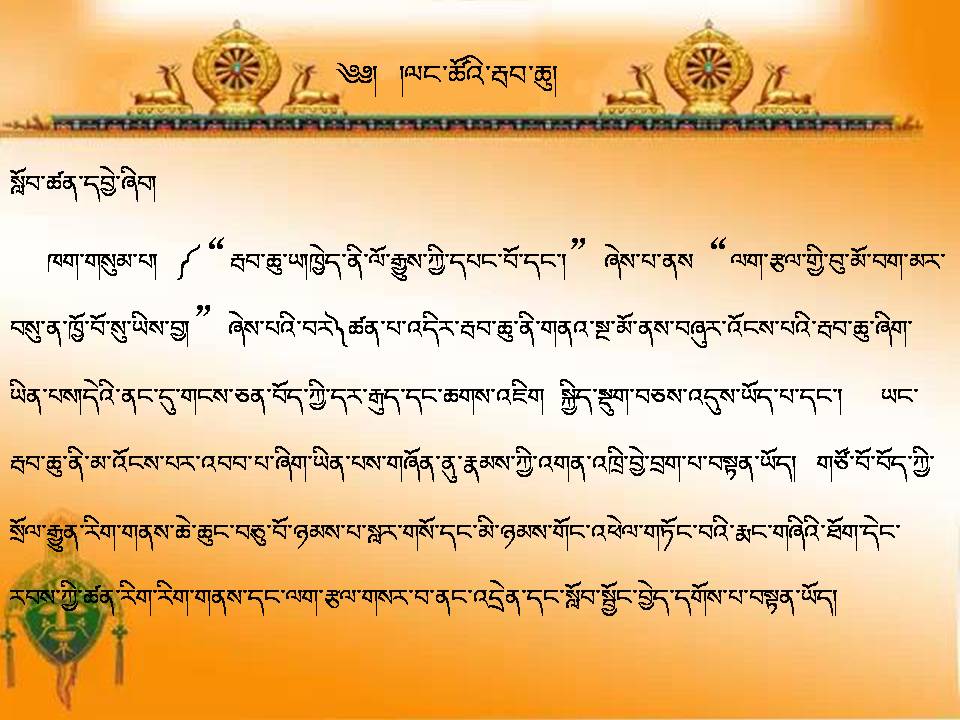 ༄༅། །ལང་ཚོའི་རྦབ་ཆུ།
སློབ་ཚན་དབྱེ་ཞིབ།
ཁག་གསུམ་པ། ༼“རྦབ་ཆུ་ཡ།ཁྱེད་ནི་ལོ་རྒྱུས་ཀྱི་དཔང་བོ་དང་།” ཞེས་པ་ནས “ལག་རྩལ་གྱི་བུ་མོ་བག་མར་
བསུ་ན་ཁྱོ་བོ་སུ་ཡིས་བྱ།” ཞེས་པའི་བར༽ཚན་པ་འདིར་རྦབ་ཆུ་ནི་གནའ་སྔ་མོ་ནས་བཞུར་འོངས་པའི་རྦབ་ཆུ་ཞིག་
ཡིན་པས།དེའི་ནང་དུ་གངས་ཅན་བོད་ཀྱི་དར་རྒུད་དང་ཆགས་འཇིག སྐྱིད་སྡུག་བཅས་འདུས་ཡོད་པ་དང་། ཡང་
རྦབ་ཆུ་ནི་མ་འོངས་པར་འབབ་པ་ཞིག་ཡིན་པས་གཞོན་ནུ་རྣམས་ཀྱི་འགན་འཁྲི་བྱེ་བྲག་པ་བསྟན་ཡོད། གཙོ་བོ་བོད་ཀྱི་
སྲོལ་རྒྱུན་རིག་གནས་ཆེ་ཆུང་བཅུ་པོ་ཉམས་པ་སླར་གསོ་དང་མི་ཉམས་གོང་འཕེལ་གཏོང་བའི་རྨང་གཞིའི་ཐོག་དེང་
རབས་ཀྱི་ཚན་རིག་རིག་གནས་དང་ལག་རྩལ་གསར་བ་ནང་འདྲེན་དང་སློབ་སྦྱོང་བྱེད་དགོས་པ་བསྟན་ཡོད།